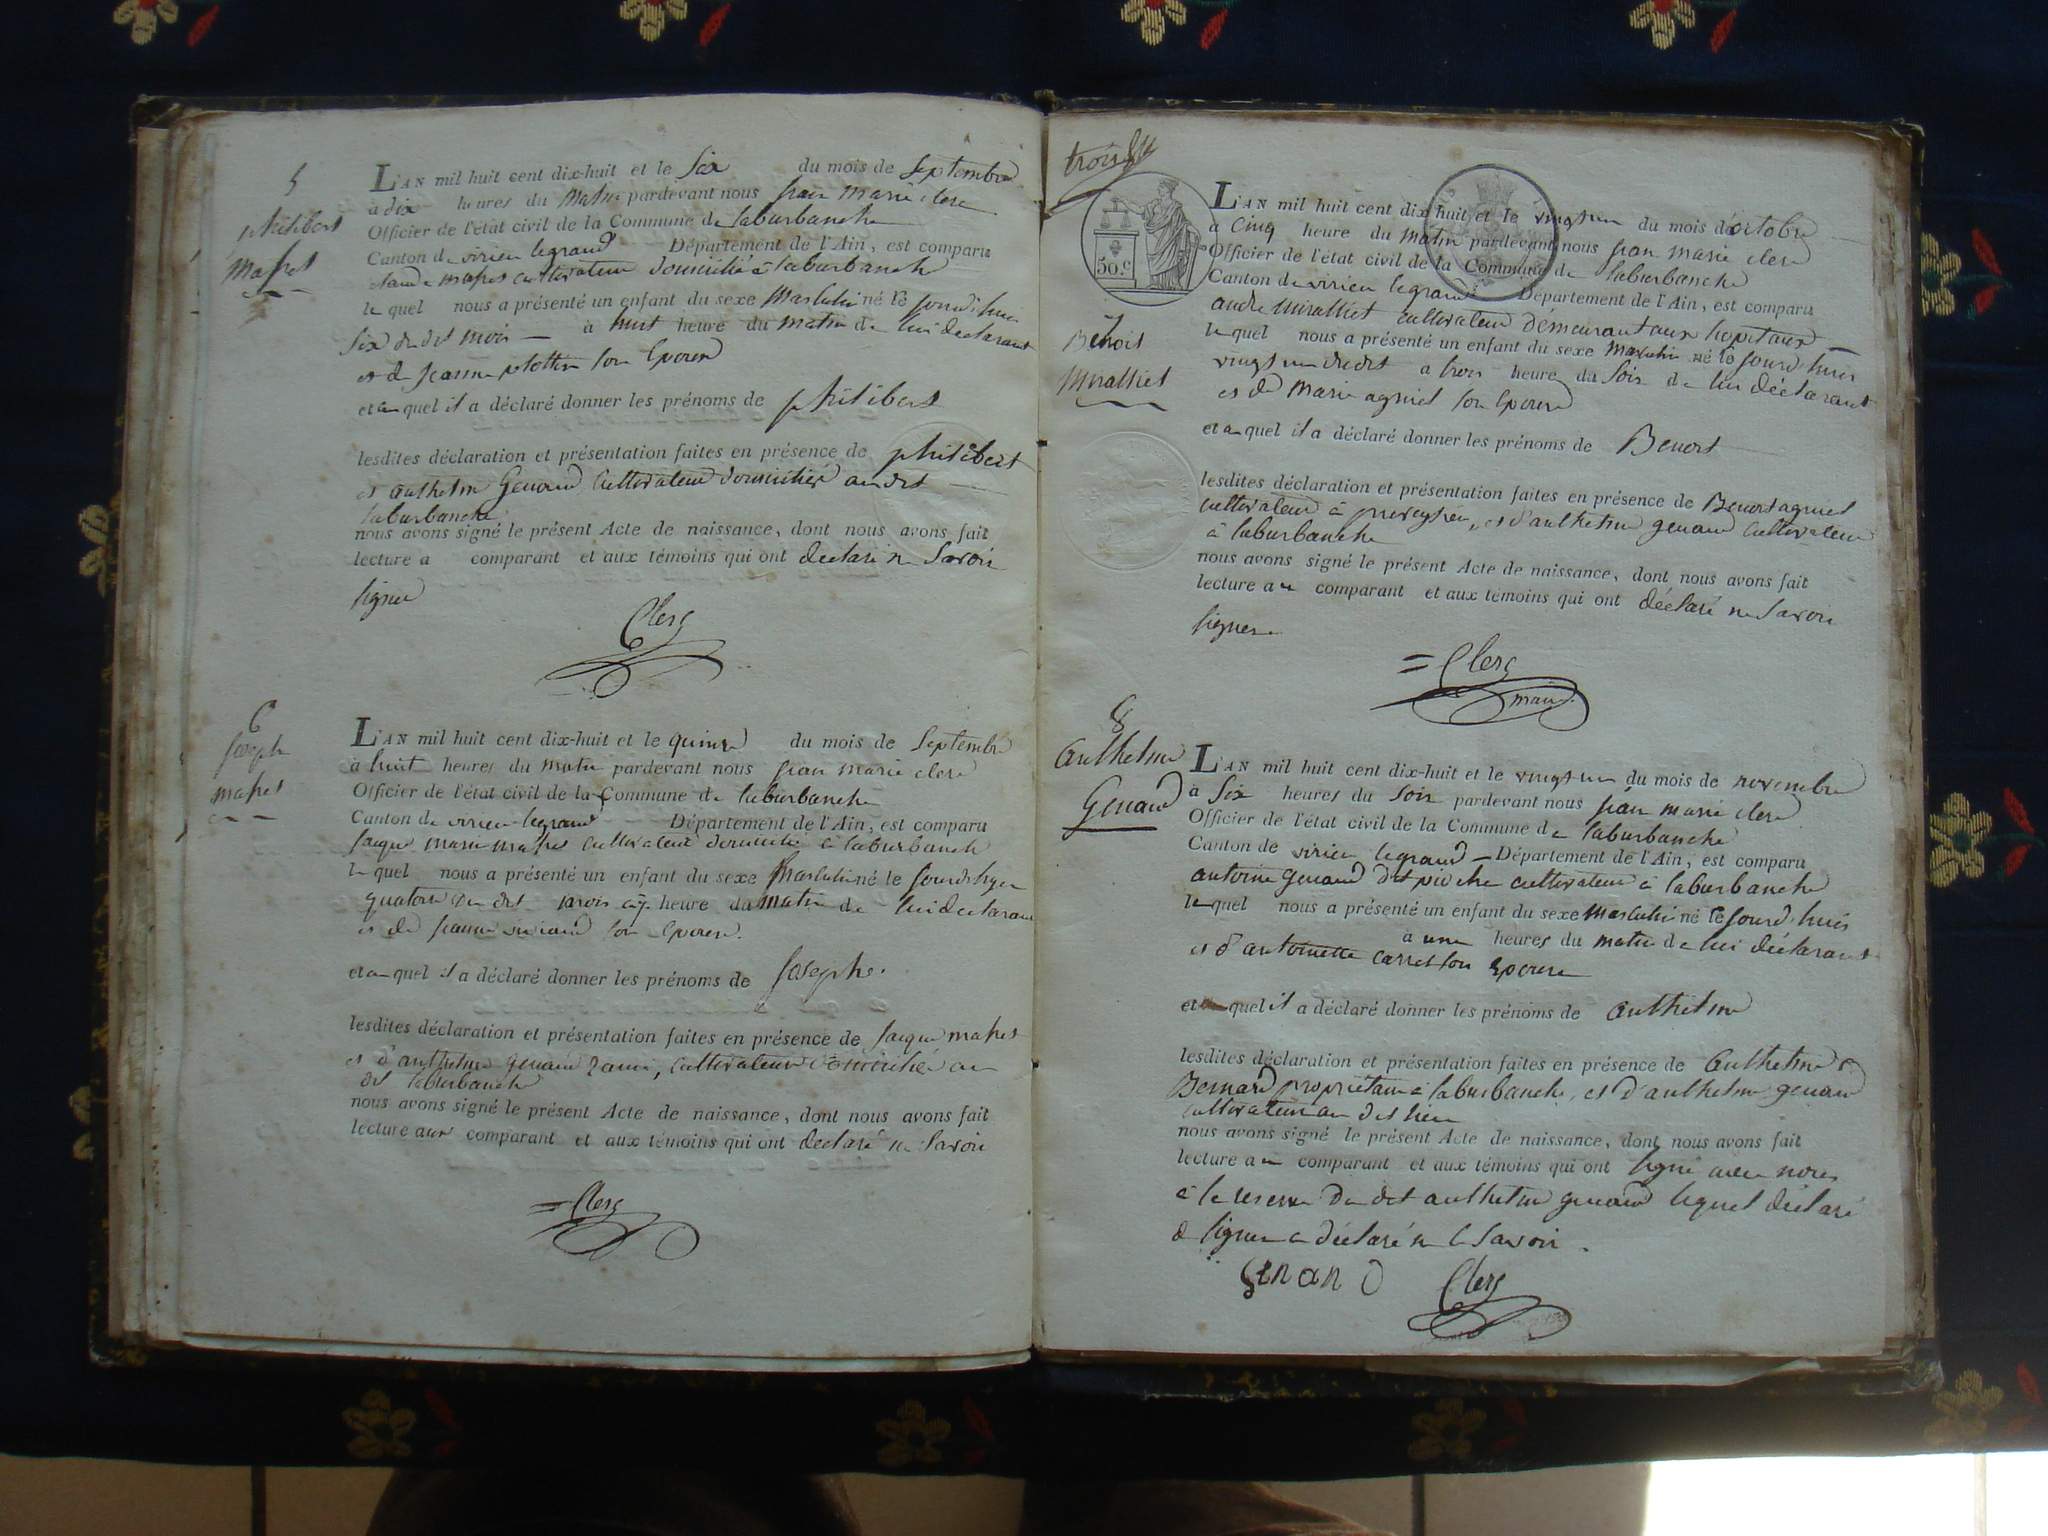 5
philibert
mapet
L'AN mil huit cent dix-huit et le Six du mois de Septembre
à dix heures du Matin pardevant nous jean marie clerc
Officier de l'état civil de la Commune de laburbanche
Canton de virieu legrand Département de l'Ain, est comparu
claude mapet cultivateur domicilié à laburbanche
le quel nous a présenté un enfant du sexe Masculin né le jourd'hui
Six du dit mois à huit heure du matin de lui déclarant
et de jeanne son Epouse
et au quel il a déclaré donner les prénoms de philibert
lesdites déclaration et présentation faites en présence de philibert
et anthelme Genand Cultivateur domiciliés audit
laburbanche
nous avons signé le présent Acte de naissance, dont nous avons fait
lecture a comparant et aux témoins qui ont declaré ne Savoir
signer
Clerc
6
joseph
mapet
L'AN mil huit cent dix-huit et le quinze du mois de Septembre
à huit heures du matin pardevant nous jean marie clerc
Officier de l'état civil de la Commune de laburbanche
Canton de virieu legrand Département de l'Ain, est comparu
jaque marie mapet cultivateur domicilié à laburbanche
le quel nous a présenté un enfant du sexe Masculin né le
quatorze du dit heure du matin de lui declarant
et de jeanne son Epouse.
et au quel il a déclaré donner les prénoms de josephe.
lesdites déclaration et présentation faites en présence de jaque mapet
et d'anthelme genand cultivateur domicilié au
dit laburbanche
nous avons signé le présent Acte de naissance, dont nous avons fait
lecture aux comparant et aux témoins qui ont declaré ne Savoir
Clerc
trois
50.c
7
Benoit
Miralliet
L'AN mil huit cent dix-huit et le vingt un du mois d'octobre
à Cinq heure du matin pardevant nous jean marie clerc
Officier de l'état civil de la Commune de laburbanche
Canton de virieu legrand Département de l'Ain, est comparu
andre Miralliet cultivateur démeurant aux hopitaux
le quel nous a présenté un enfant du sexe Masculin né le jourd'huis
vingt un dudit a trois heure du Soir de lui déclarant
et de Marie agniel son Epouse
et au quel il a déclaré donner les prénoms de Benoit
lesdites déclaration et présentation faites en présence de Benoit agniel
cultivateur à et d'anthelme genand Cultivateur
à laburbanche
nous avons signé le présent Acte de naissance, dont nous avons fait
lecture au comparant et aux témoins qui ont déclaré ne Savoir
signer
Clerc
maire
8
anthelme
Genand
L'AN mil huit cent dix-huit et le vingt un du mois de novembre
à Six heures du Soir pardevant nous jean marie clerc
Officier de l'état civil de la Commune de laburbanche
Canton de virieu legrand Département de l'Ain, est comparu
antoine genand dit cultivateur à laburbanche
le quel nous a présenté un enfant du sexe Masculin né le jourd'huis
à une heures du matin de lui déclarant
et d'antoinette carrel son Epouse
et au quel il a déclaré donner les prénoms de anthelme
lesdites déclaration et présentation faites en présence de anthelme
Bernard propriétaire à laburbanche, et d'anthelme genand
cultivateur au dit lieu
nous avons signé le présent Acte de naissance, dont nous avons fait
lecture au comparant et aux témoins qui ont signé avec nous
à la reserve du dit anthelme genand lequel déclaré
de signer a déclaré ne le savoir.
Genand Clerc